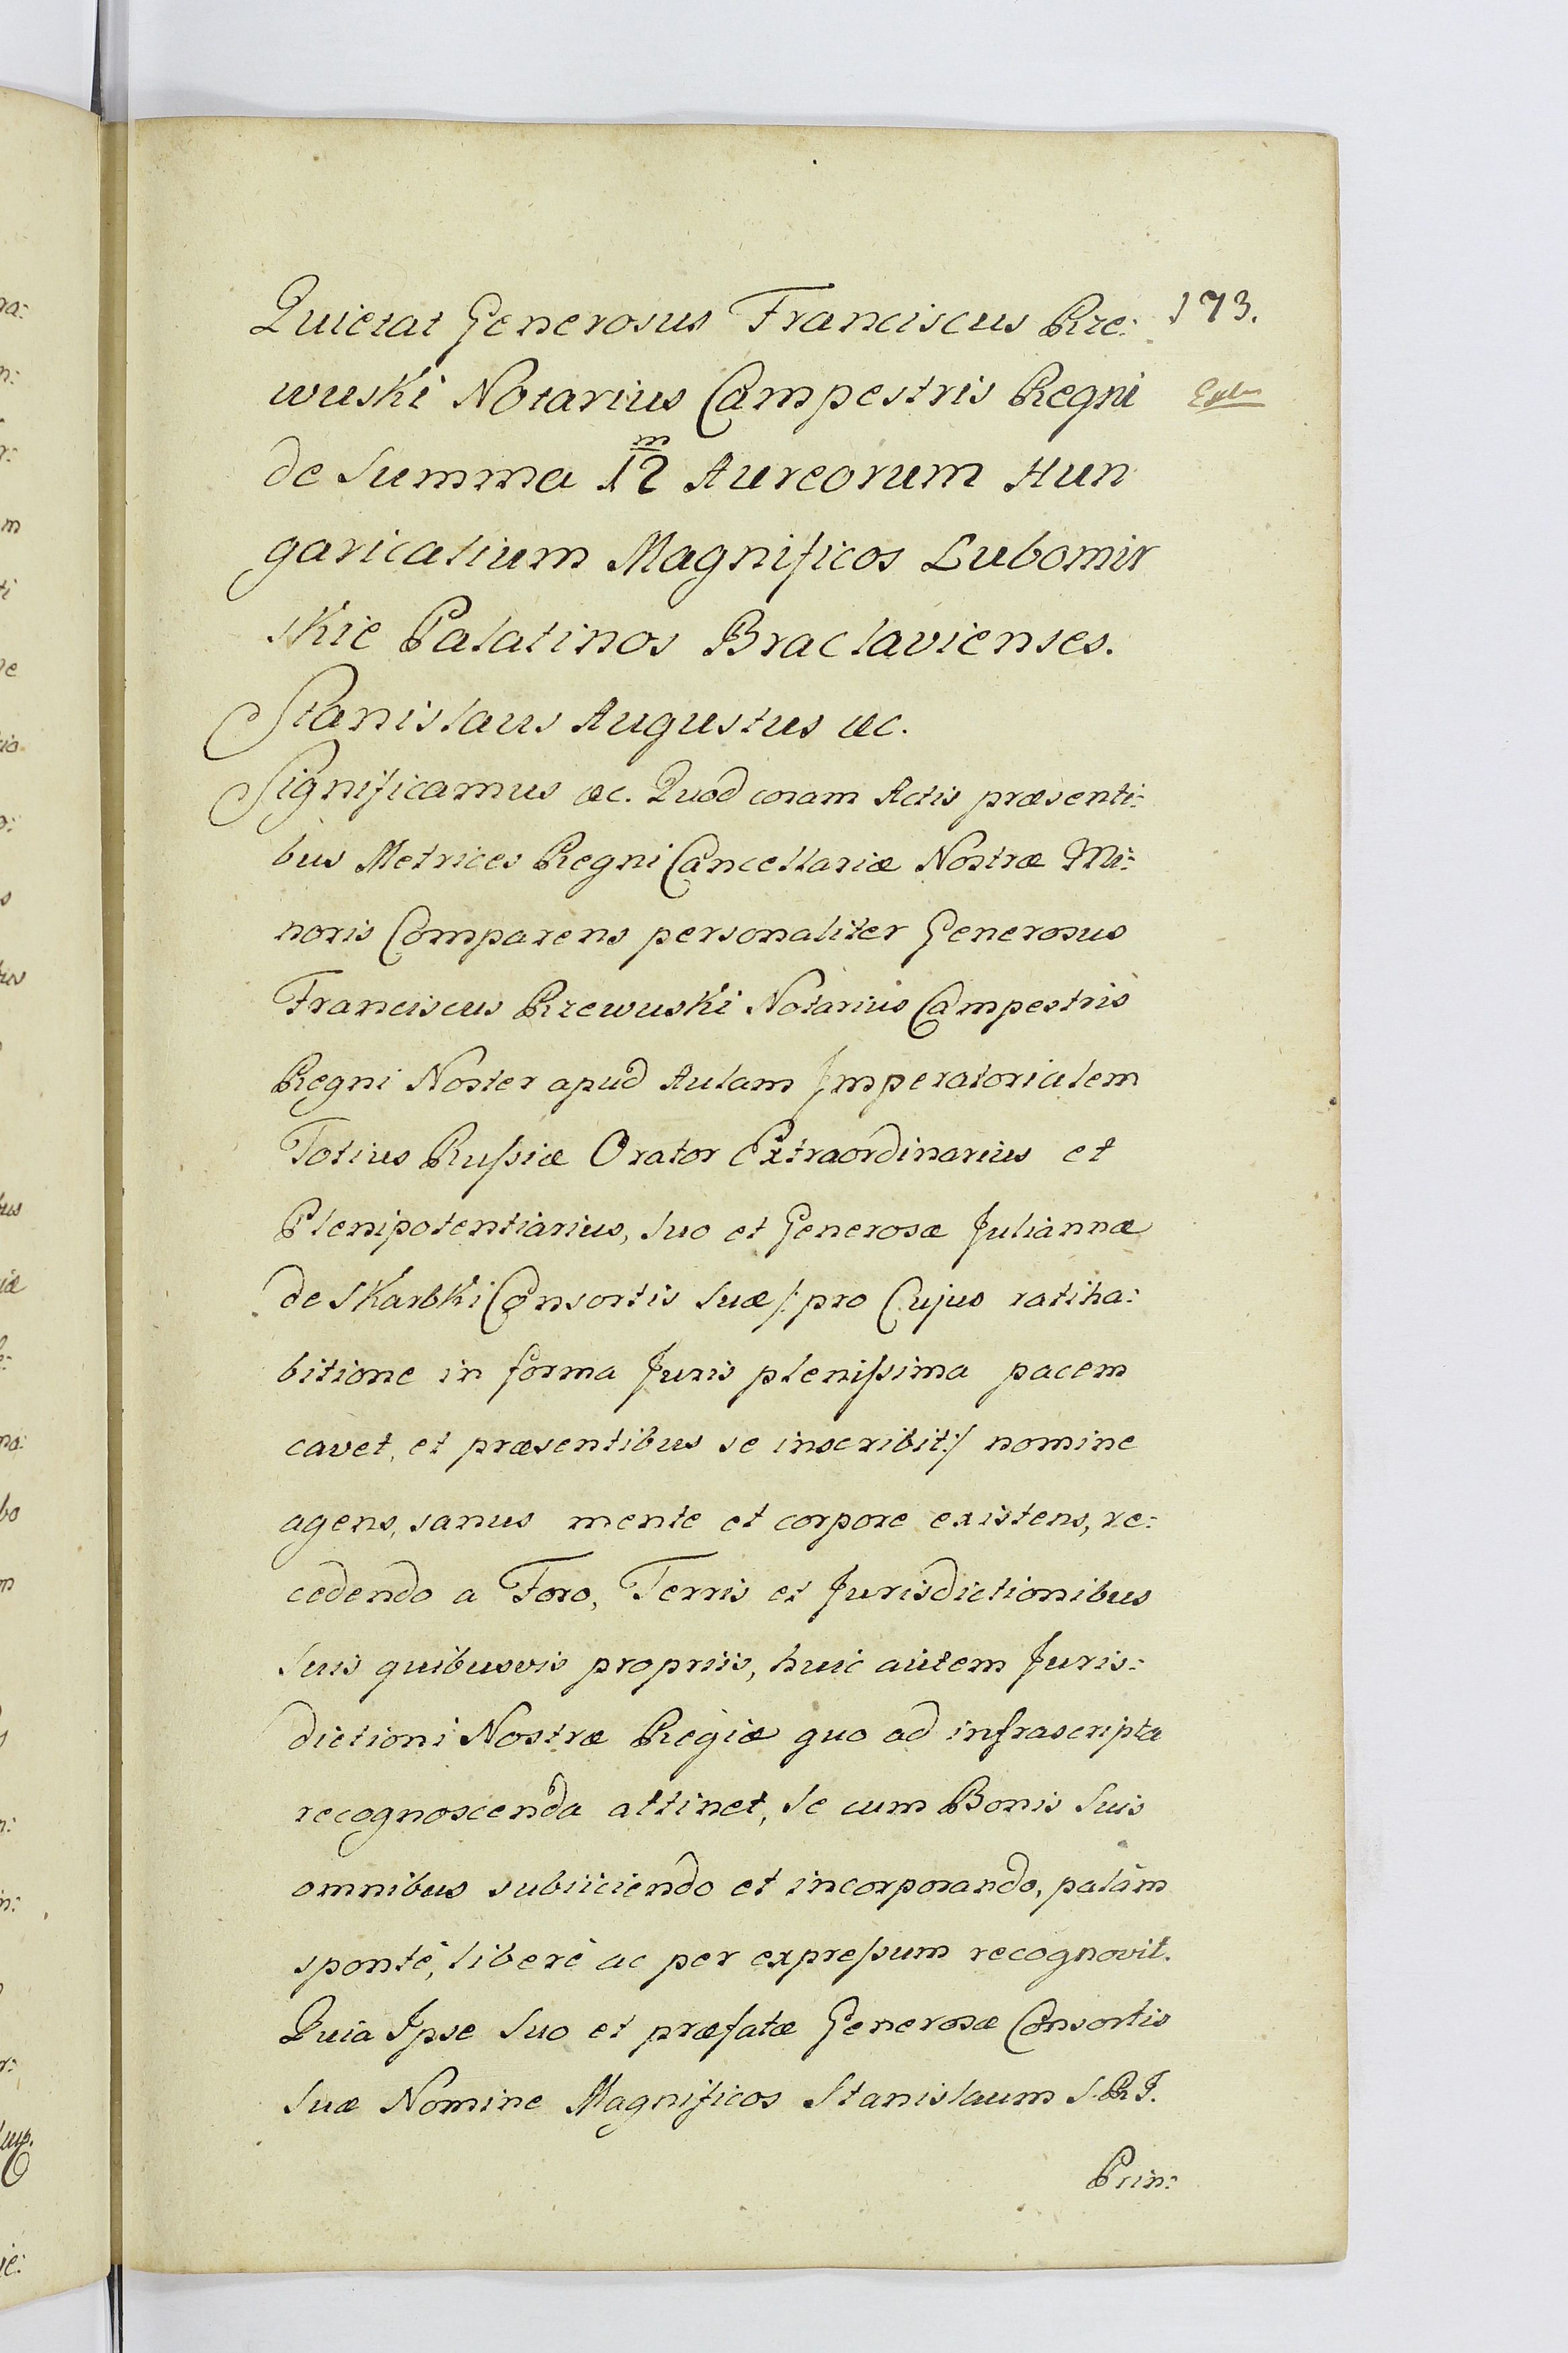 173.
Quietat Generosus Franciscus Rze:
wuski Notarius Campestris Regni
de Summa 12 m Aureorum Hun
garicalium Magnificos Lubomir
skie Palatinos Braclavienses.
Stanislaus Augustus &c.
Significamus &c. Quod coram Actis præsenti:
bus Metrices Regni Cancellariæ Nostræ Mi:
noris Comparens personaliter Generosus
Franciscus Rzewuski Notarius Campestris
Regni Noster apud Aulam Imperatorialem
Totius Russiæ Orator Extraordinarius et
Plenipotentiarius, Suo et Generosæ Juliannæ
de Skarbki Consortis Suæ /: pro Cujus ratiha:
bitione in forma Juris plenissima pacem
cavet, et præsentibus se inscribit :/ nomine
agens, sanus mente et corpore existens, re:
cedendo a Foro, Terris et Jurisdictionibus
Suis quibusvis propriis, huic autem Juris:
dictioni Nostræ Regiæ quo ad infrascripta
recognoscenda attinet, Se cum Bonis Suis
omnibus subiiciendo et incorporando, palàm
spontè, liberè ac per expressum recognovit.
Quia Ipse Suo et præfatæ Generosæ Consortis
Suæ Nomine Magnificos Stanislaum S.R.I.
Prin: